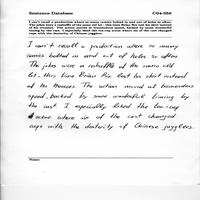 Sentence Database
C04-052
I can't recall a production where so many comics bolted in and out of holes so often.
The jokes were a reshuffle of the same old lot - this time Brian Rix lost his shirt instead
of his trousers. The action moved at tremendous speed, backed by some wonderful
timing by the cast. I especially liked the tea-cup scene where six of the cast changed
cups with the dexterity of Chinese jugglers.
I can't recall a production where so many
comics bolted in and out of holes so often.
The jokes were a reshuffle of the same old
lot - this time Brian Rix lost his shirt instead
of his trousers. The action moved at tremendous
speed, backed by some wonderful timing by
the cast. I especially liked the tea-cup
scene where six of the cast changed
cups with the dexterity of Chinese jugglers.
Name: